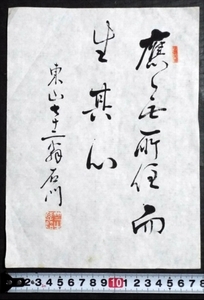 應無所住而
生其心
東山七十二翁石川
1 2 3 4 5 6 7 8 9 10 1 2 3 4 5 6 7 8